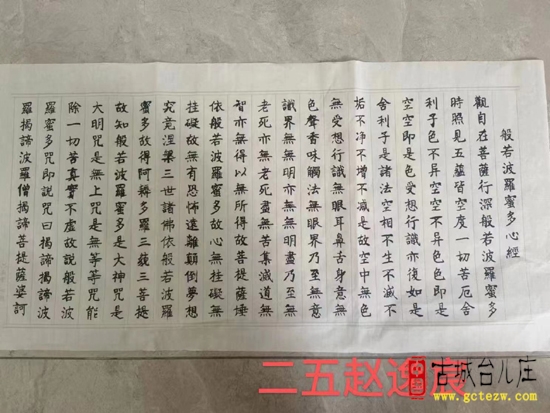 般若波羅蜜多心經
觀自在菩薩行深般若波羅蜜多
時照見五蘊皆空度一切苦厄舍
利子色不異空空不異色色即是
空空即是色受想行識亦復如是
舍利子是諸法空相不生不滅不
垢不净不增不減是故空中無色
無受想行識無眼耳鼻舌身意無
色聲香味觸法無眼界乃至無意
識界無無明亦無無明盡乃至無
老死亦無老死盡無苦集滅道無
智亦無得以無所得故菩提薩埵
依般若波羅蜜多故心無挂礙無
挂礙故無有恐怖遠離顛倒夢想
究竟涅槃三世諸佛依般若波羅
蜜多故得阿耨多羅三藐三菩提
故知般若波羅蜜多是大神咒是
大明咒是無上咒是無等等咒能
除一切苦真實不虛故說般若波
羅蜜多咒即說咒曰揭諦揭諦波
羅揭諦波羅僧揭諦菩提薩婆訶
二五赵逸宸
中國古城台儿庄
www.gctezw.com